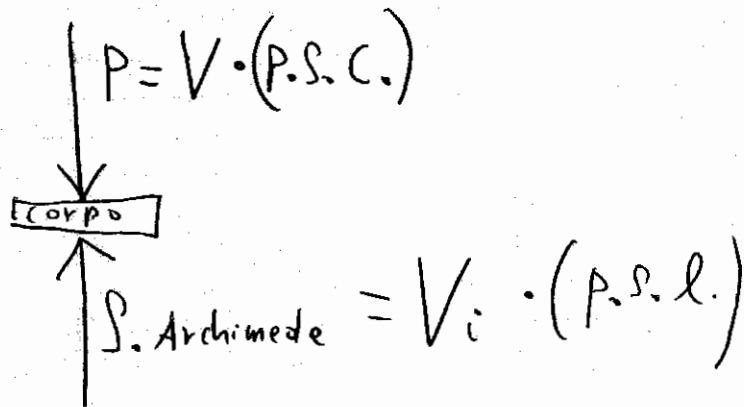 P = V · (P.S.C.)
corpo
S. Archimede = Vi · (p.s.l.)